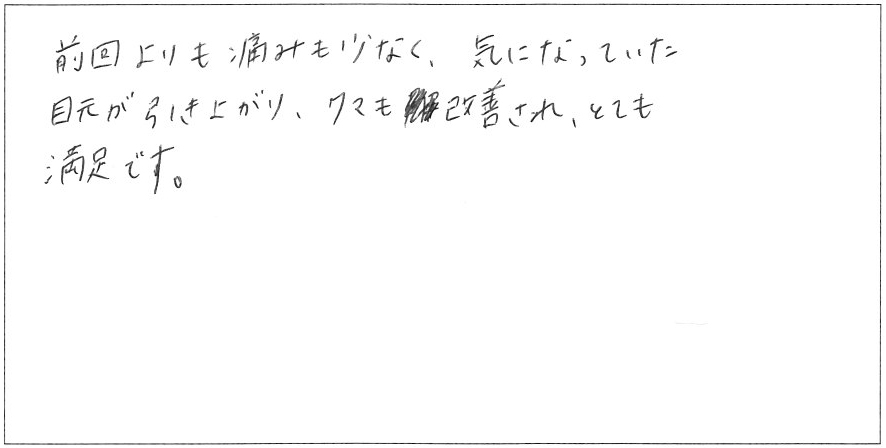 前回よりも痛みも少なく、気になっていた
目元が引き上がり、クマも改善され、とても
満足です。